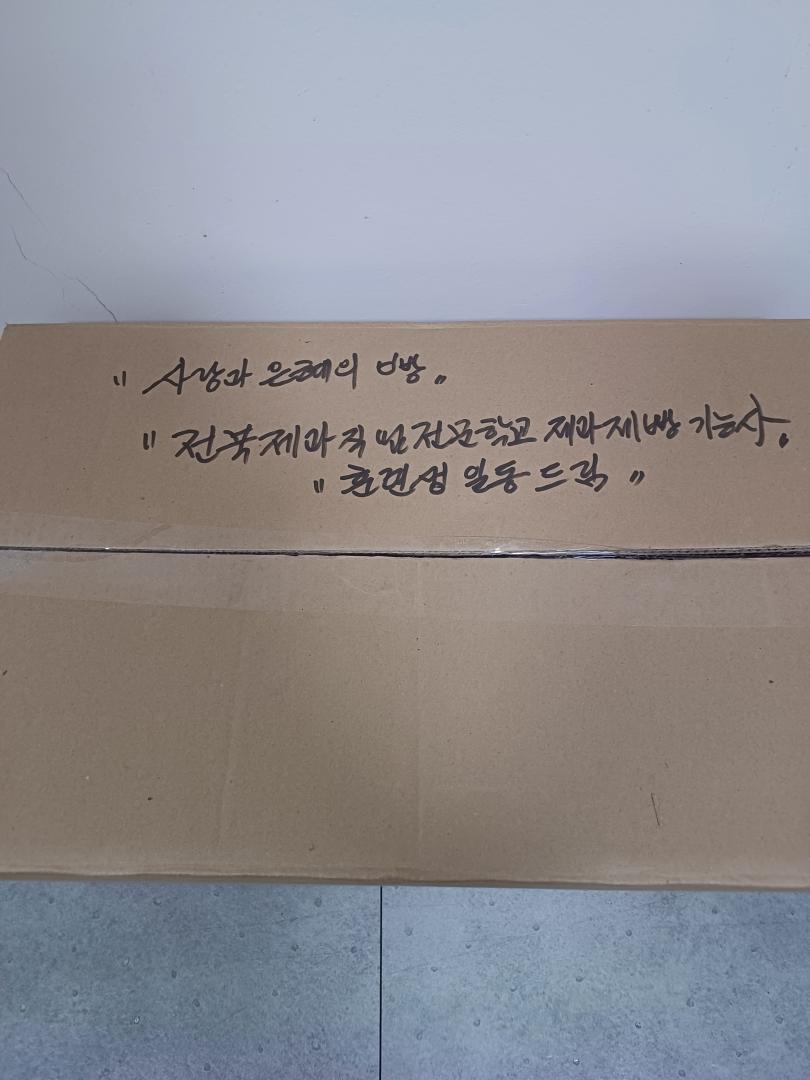 " 사랑과 은혜의 빵 "
" 전북제과직업전문학교 제과제빵 기능사.
" 훈련생 일동 드림 "